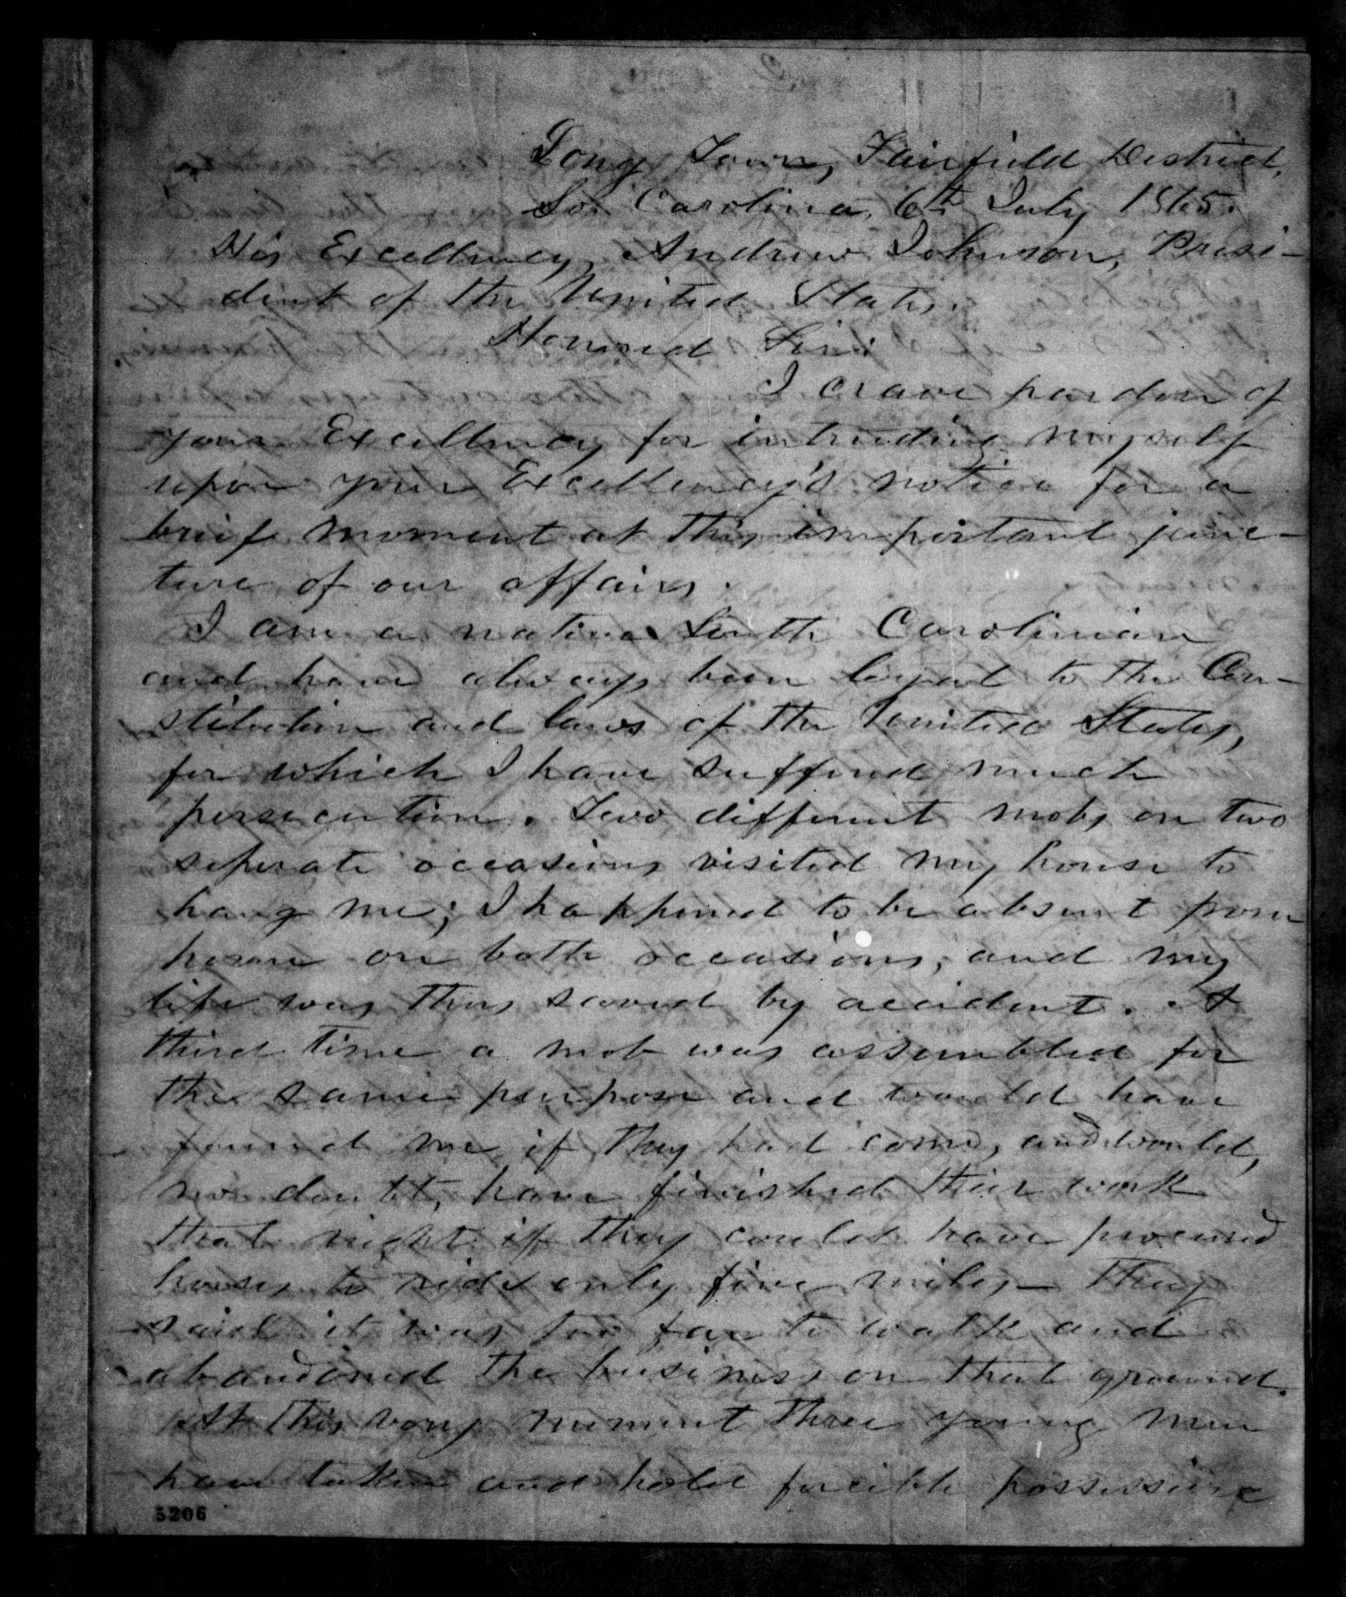 Long Town, Fairfield District,
So. Carolina, 6th July 1865.
His Excellency, Andrew Johnson, Presi-
dent of the United States.
Honored Sir:
I crave pardon of
your Excellency for intruding myself
upon your Excellency's notice for a
brief moment at this important junc-
ture of our affairs.
I am a native South Carolinian
and have always been loyal to the Con-
stitution and laws of the United States,
for which I have suffered much
persecution. Two different mobs on two
seperate occasions visited my house to
hang me; I happened to be absent from
home on both occasions, and my
life was thus saved by accident. A
third time a mob was assembled for
the same purpose and would have
found me if they had come, and would,
no doubt, have finished their work
that night if they could have procured
horses to ride only five miles - they
said it was too far to walk and
abandoned the business on that ground.
At this very moment three young men
have taken and hold forcible possession
5206